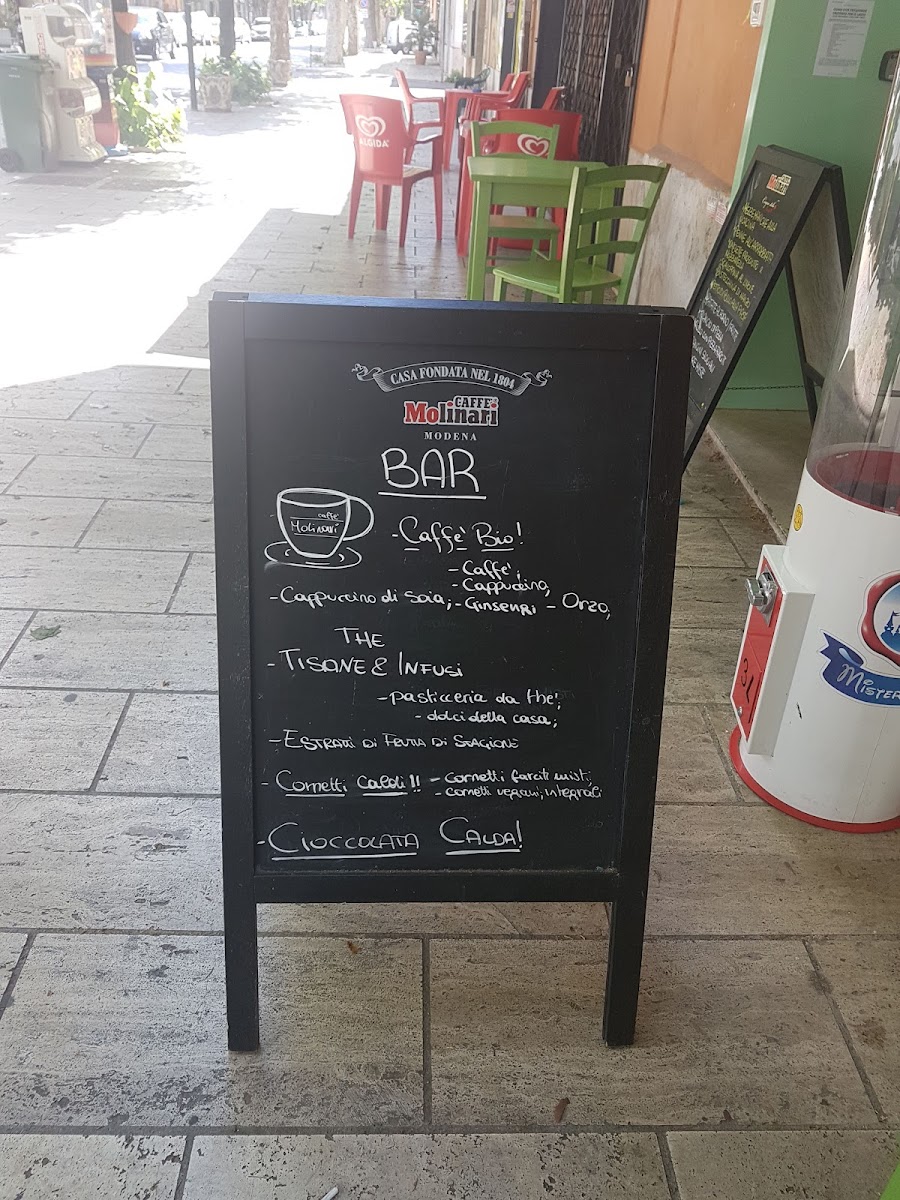 ALGIDA
CASA FONDATA NEL 1804
CAFFÈ
Molinari
MODENA
BAR
caffè
Molinari
- Caffè Bio!
- Caffè,
- Cappuccino,
- Cappuccino di soia; - GINSENRI - Orzo,
THE
- TISANE & INFUSI
- pasticceria da the';
- dolci della casa;
- ESTRATTI DI FRUTTA DI STAGIONE
- Cornetti Caldi!! - Cornetti farciti misti,
- cornetti vegani, integrali
- CIOCCOLATA CALDA!
Molinari
MISTER